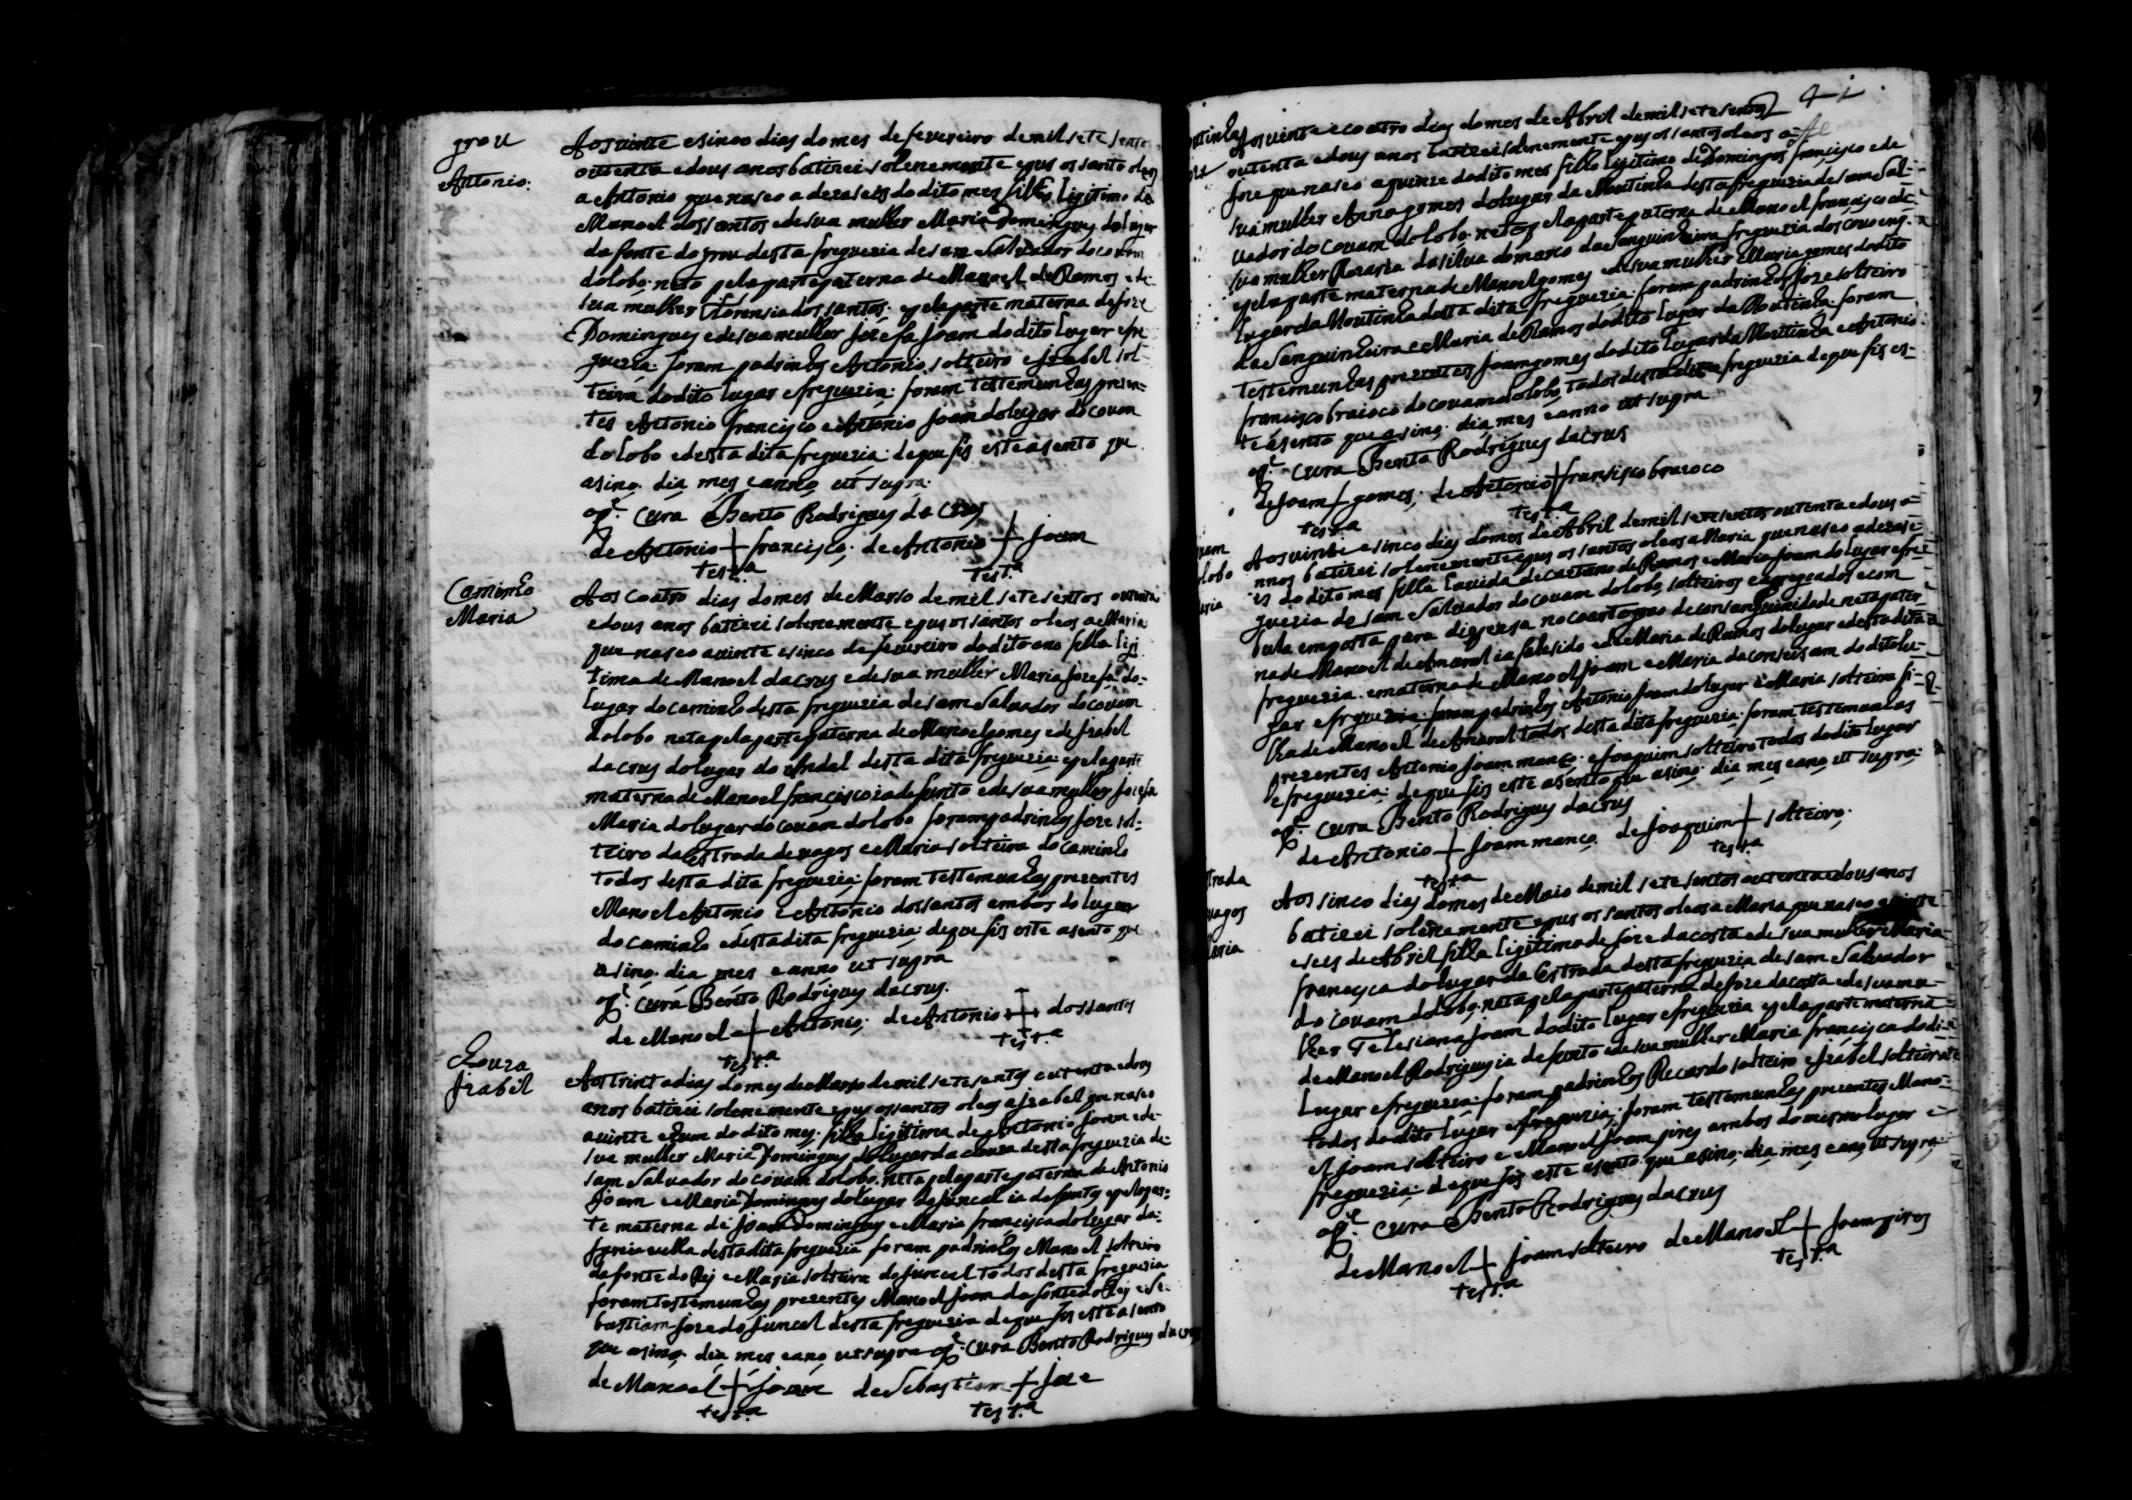 grou
Antonio.
Aos vinte e sinco dias do mes de fevereiro de mil setesento
outenta e dous anos batizei solenemente e pus os santo oleos
a Antonio que naseo a dezaseis do dito mes filho ligitimo de
Manoel dos santos e de sua mulher Maria Domingues do lugar
da fonte do grou desta freguezia de sam Salvador do covam
do lobo neto pela parte paterna de Manoel de Ramos e de
sua mulher florensia dos santos e pela parte materna de Joze
Domingues e de sua mulher Jozefa Joam do dito lugar e fre
guezia: foram padrinhos Antonio solteiro e Izabel sol-
teira do dito lugar e freguezia: foram testemunhas prezen=
tes Antonio francisco e Antonio Joam do lugar do covam
do lobo e desta dita freguezia: de que fis este asento que
asino. dia mes e anno ut supra.
Cura Bento Rodrigues da Crus
de Antonio + francisco. de Antonio + Joam
test.ª test.ª
Caminho
Maria
Aos coatro dias do mes de Marso de mil setesentos outenta
e dous anos batizei solenemente e pus os santos oleos a Maria
que naseo a vinte e sinco de fevereiro do dito ano filha ligi
tima de Manoel da crus e de sua mulher Maria Jozefa do-
lugar do caminho desta freguezia de sam Salvador do covam
do lobo neta pela parte paterna de Manoel gomes e de Izabel
da crus do lugar do Andal desta dita freguezia e pela parte
materna de Manoel francisco ia defunto e de sua mulher Jozefa
Maria do lugar do covam do lobo foram padrinhos Joze sol-
teiro da estrada de vagos e Maria solteira do caminho
todos desta dita freguezia: foram testemunhas prezentes
Manoel Antonio e Antonio dos santos ambos do lugar
do caminho e desta dita freguezia: de que fis este asento que
asino. dia mes e anno ut supra
Cura Bento Rodrigues da crus.
de Manoel + Antonio; de Antonio + dos santos
test.ª test.ª
Izabel
Aos trinta dias do mes de Marso de mil setesentos outenta e dous
anos batizei solenemente e pus os santos oleos a Izabel que naseo
a vinte e hum do dito mes. filha ligitima de Antonio Joam e de-
sua mulher Maria Domingues do lugar da desta freguezia de-
sam Salvador do covam do lobo. neta pela parte paterna de Antonio
Joam e Maria Domingues do lugar do Juncal ia defuntos e pela par=
te materna de Joam Domingues e Maria francisca do lugar da-
desta dita freguezia foram padrinhos Manoel solteiro
da fonte do Rej e Maria solteira do Juncal todos desta freguezia
foram testemunhas prezentes Manoel Joam da fonte do Rej e Se-
bastiam Joze do Juncal desta freguezia de que fis este asento
que asino. dia mes e ano ut supra Cura Bento Rodrigues da crus
de Manoel + Joam de Sebastiam + Joze
test.ª test.ª
41
Aos vinte e coatro dias do mes de Abril de mil setesentos
outenta e dous anos batizei solenemente e pus os santos oleos a
Joze que naseo a quinze do dito mes filho ligitimo de Domingos francisco e de
sua mulher Anna gomes do lugar da Moutinha desta freguezia de sam Sal-
vador do covam do lobo neto pela parte paterna de Manoel francisco e de
sua mulher Rozaria da silva do marco da Sanguinheira freguezia dos
e pela parte materna de Manoel gomes e de sua mulher Maria gomes do dito
lugar da Moutinha desta dita freguezia: foram padrinhos Joze solteiro
da Sanguinheira e Maria de Ramos do dito lugar da Moutinha: foram
testemunhas prezentes Joam gomes do dito lugar da Moutinha e Antonio
francisco braioco do covam do lobo todos desta dita freguezia de que fis es-
te asento que asino: dia mes e anno ut supra
Cura Bento Rodrigues da crus
de Joam + gomes; de Antonio + francisco braioco
test.ª test.ª
Aos vinte e sinco dias do mes de Abril de mil setesentos outenta e dous a-
nnos batizei solenemente e pus os santos oleos a Maria que naseo a dezase-
is do dito mes filha havida de caetano de Ramos e Maria Joam do lugar e fre-
guezia de sam Salvador do covam do lobo, solteiros e com
bula emposta para dispensa no coarto grao de consanguinidade neta pater
na de Manoel de Amaral ia falesido e de Maria de Ramos do lugar e desta dita
freguezia. e materna de Manoel Joam e Maria da conseisam do dito lu-
gar e freguezia: foram padrinhos Antonio Joam do lugar e Maria solteira fi-
lha de Manoel de Amaral todos desta dita freguezia: foram testemunhas
prezentes Antonio Joam manco e Joaquim solteiro todos do dito lugar
e freguezia: de que fis este asento que asino: dia mes e ano ut supra.
Cura Bento Rodrigues da crus
de Antonio + Joam manco de Joaquim + solteiro.
test.ª test.ª
Aos sinco dias do mes de Maio de mil setesentos outenta e dous anos
batizei solenemente e pus os santos oleos a Maria que naseo a vinte
e seis de Abril filha ligitima de Joze da costa e de sua mulher Maria
francisca do lugar da Estrada desta freguezia de sam Salvador
do covam do lobo. neta pela parte paterna de Joze da costa e de sua mu-
lher Joam do dito lugar e freguezia e pela parte materna
de Manoel Rodrigues ia defunto e de sua mulher Maria francisca do di-
lugar e freguezia: foram padrinhos Recardo solteiro e Izabel solteira
todos do dito lugar e freguezia; foram testemunhas prezentes Mano-
el Joam solteiro e Manoel Joam pires ambos do mesmo lugar e
freguezia: de que fis este asento que asino: dia mes e ano ut supra
Cura Bento Rodrigues da crus
de Manoel + Joam solteiro de Manoel + Joam pires
test.ª test.ª